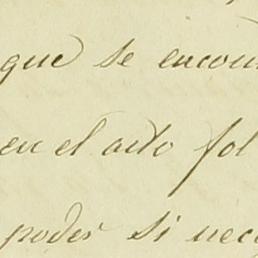 que se encon
en el acto fol
poder si nece